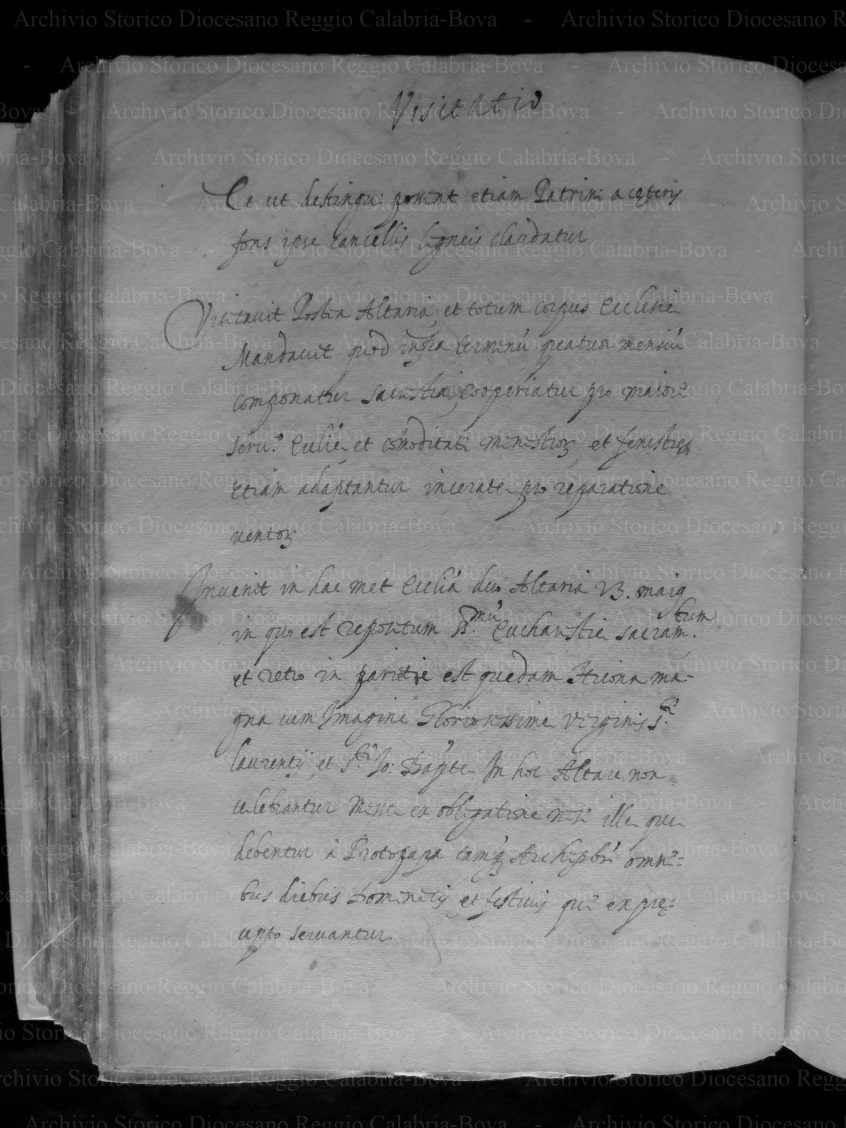 Visitatio
Et ut distingui possint etiam Patrini a ceteris
fons ipse cancellis ligneis claudatur
Visitavit Postea Altaria, et totum corpus Ecclesie
Mandavit quod infra terminū quatuor mensiū
componatur sacristia, cooperiatur pro maiori
serv.º Ecclie, et cōmoditate ministroꝝ et fenestre
etiam adaptantur incerate pro reparatione
ventoꝝ
Invenit in hac met Ecclia duo Altaria vz. maiꝰ
in quo est repositum SS.mū Eucharistie sacram.tum
et retro in pariete est quedam Hicona ma-
gna cum Imagine Gloriosissime Virginis S.ti
laurentij et S.ti Jo: Bapte In hoc Altare non
celebrantur Misse ex obligatione nisi ille que
debentur à Protopapa tamq̃ Archipbrō omni-
bus diebus Dominicis et festivis que ex pre-
cepto servantur